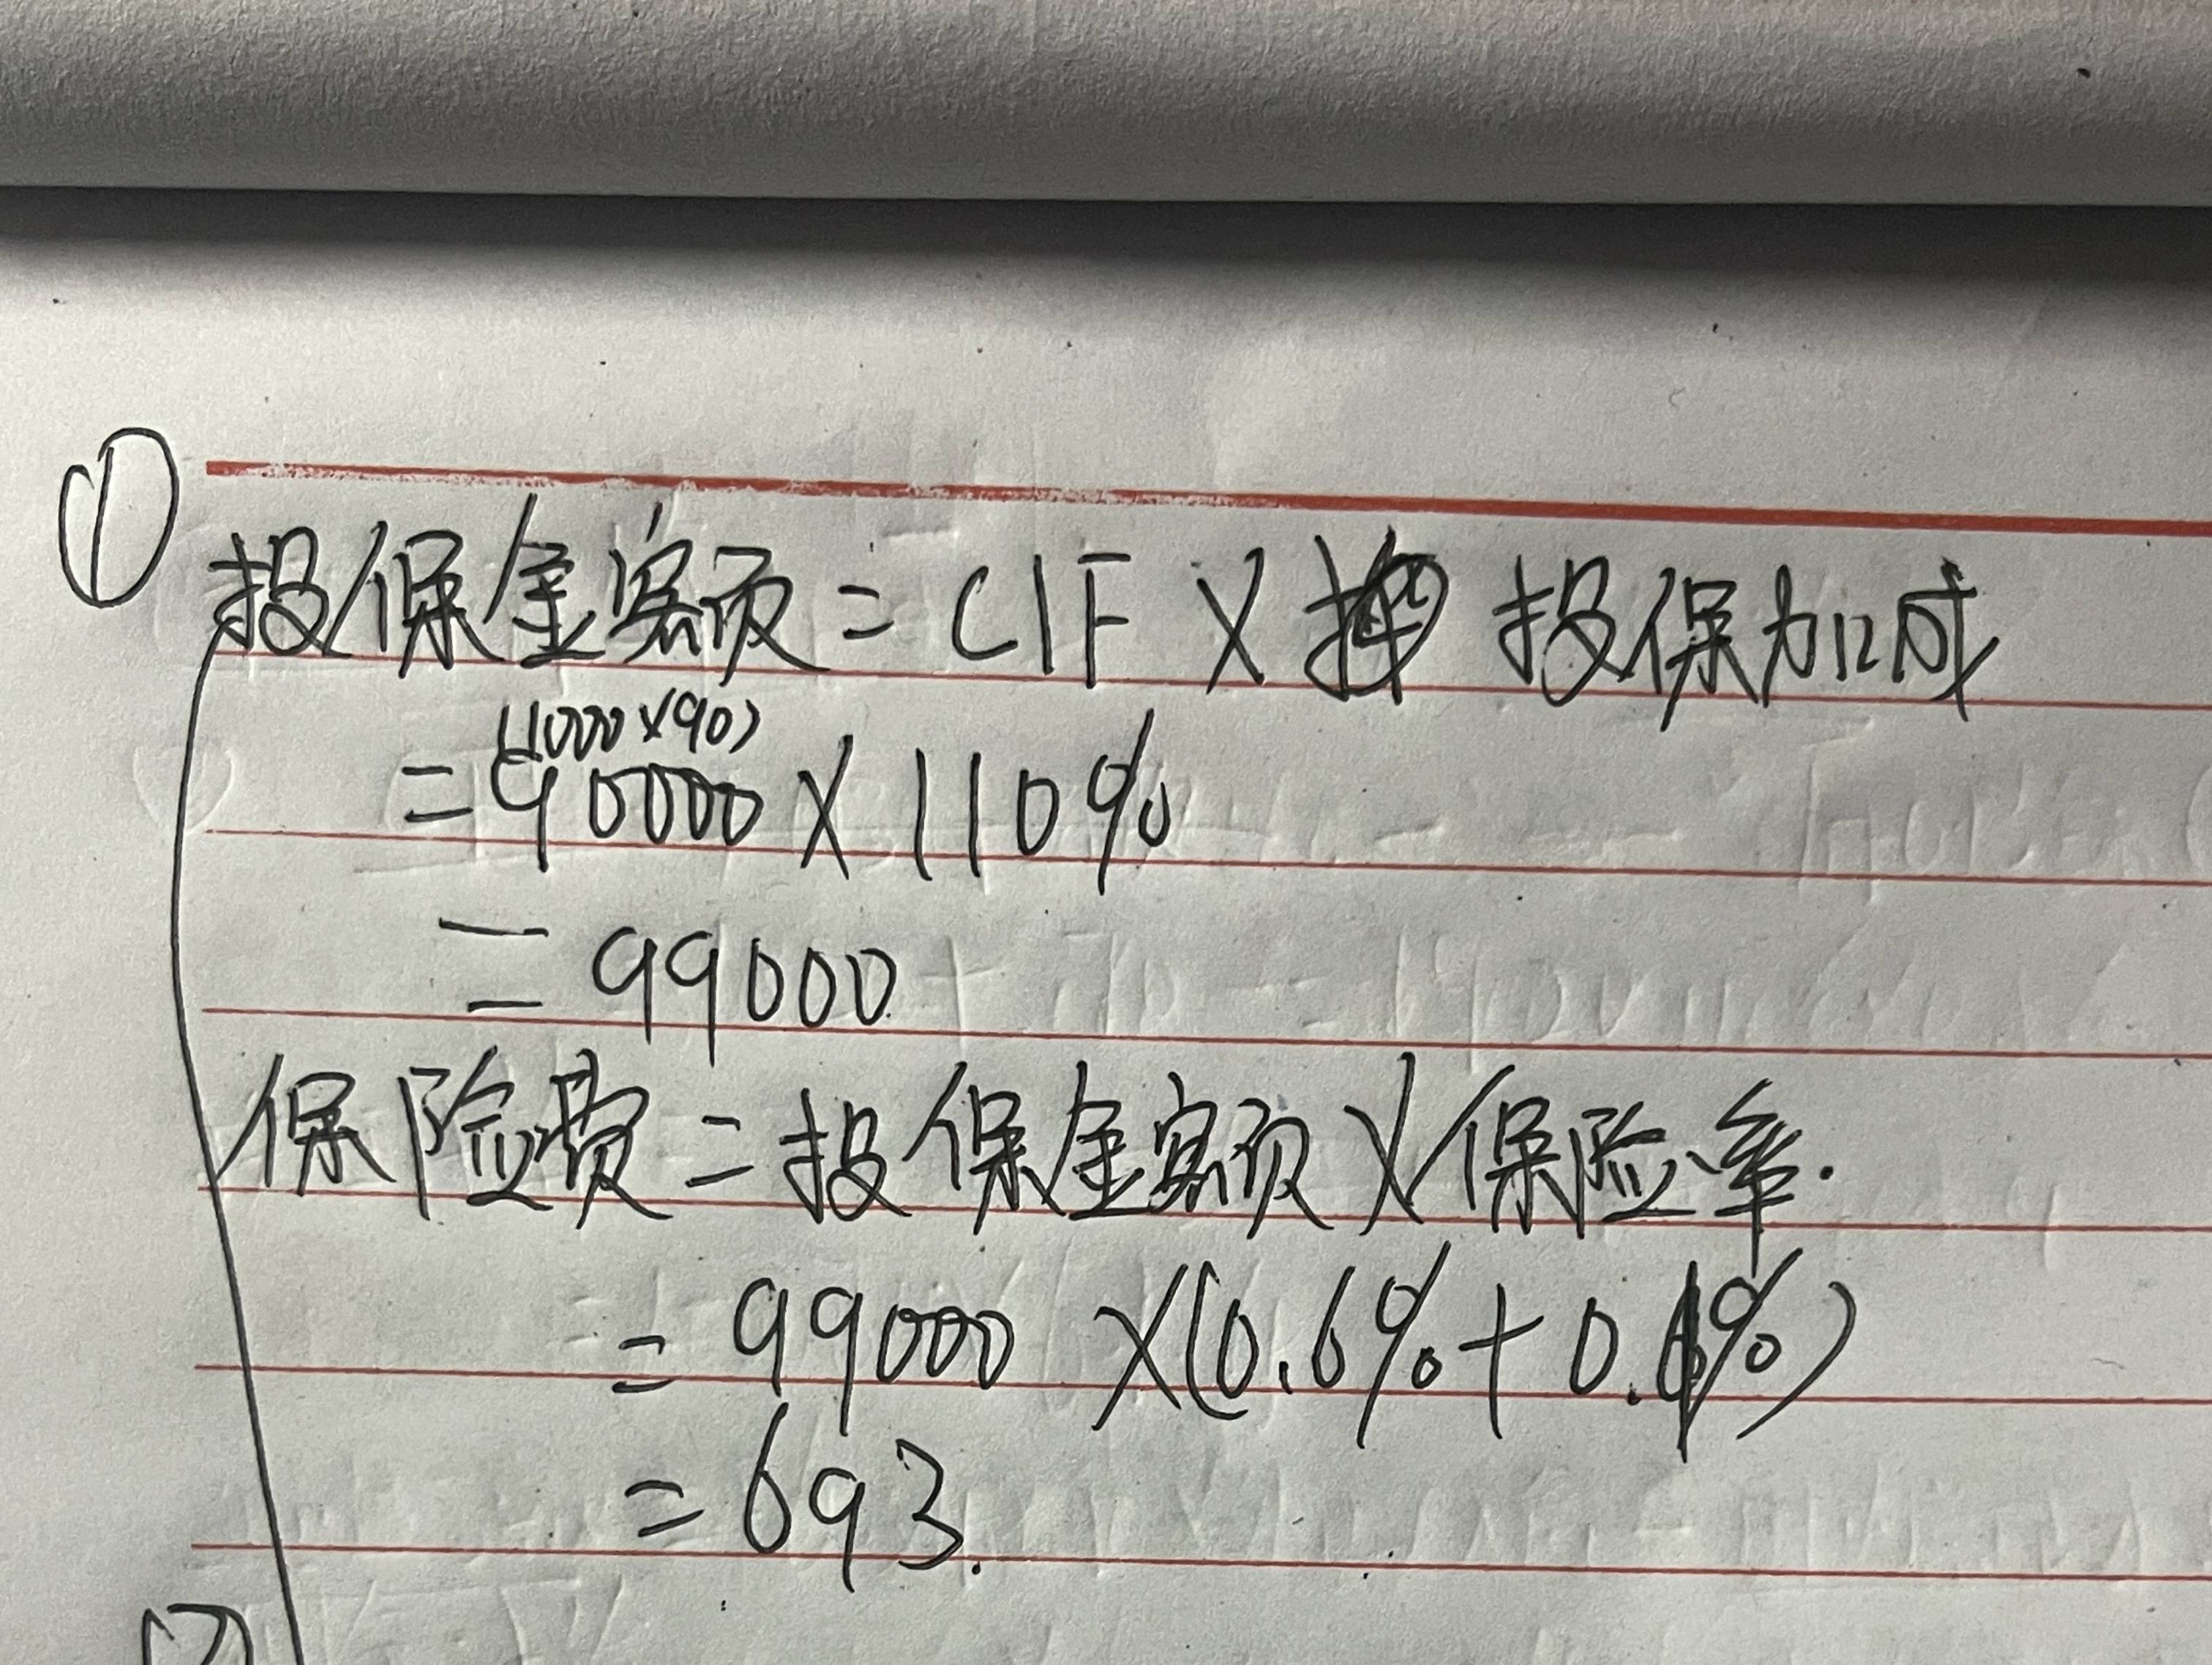 ① 投保金额 = CIF × 投保加成
(1000×90)
= 90000 × 110%
= 99000
保险费 = 投保金额 × 保险率.
= 99000 ×(0.6%+0.1%)
= 693.